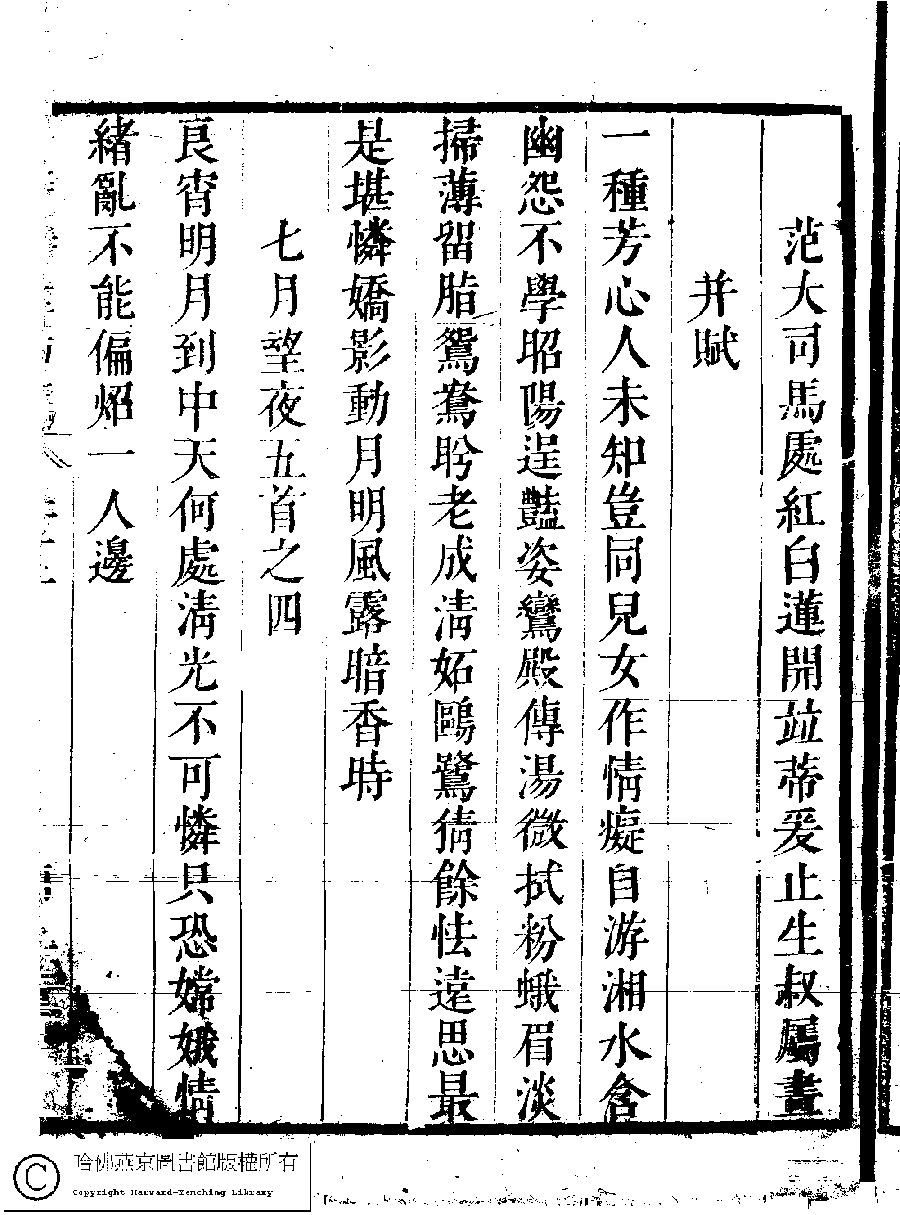 范大司馬處紅白蓮開竝蒂爰止生叔屬畫
并賦
一種芳心人未知豈同兒女作情癡自游湘水含
幽怨不學昭陽逞豔姿鸞殿傳湯微拭粉蛾眉淡
掃薄留脂鴛鴦盻老成淸妬鷗鷺猜餘怯遠思最
是堪憐嬌影動月明風露暗香時
七月望夜五首之四
良宵明月到中天何處淸光不可憐只恐嫦娥情
緒亂不能偏炤一人邊
哈佛燕京圖書館版權所有
Copyright Harvard-Yenching Library